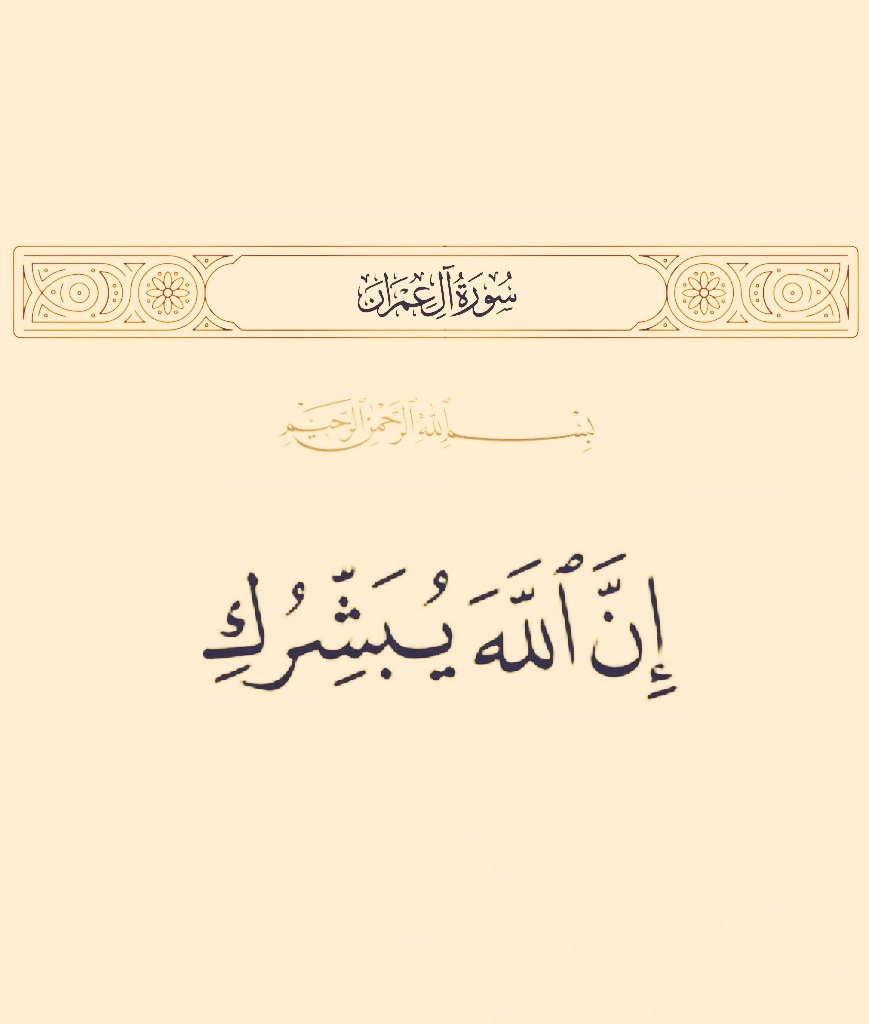 سُورَةُ آلِ عِمْرَانَ
بِسْمِ ٱللَّهِ ٱلرَّحْمَٰنِ ٱلرَّحِيمِ
إِنَّ ٱللَّهَ يُبَشِّرُكِ